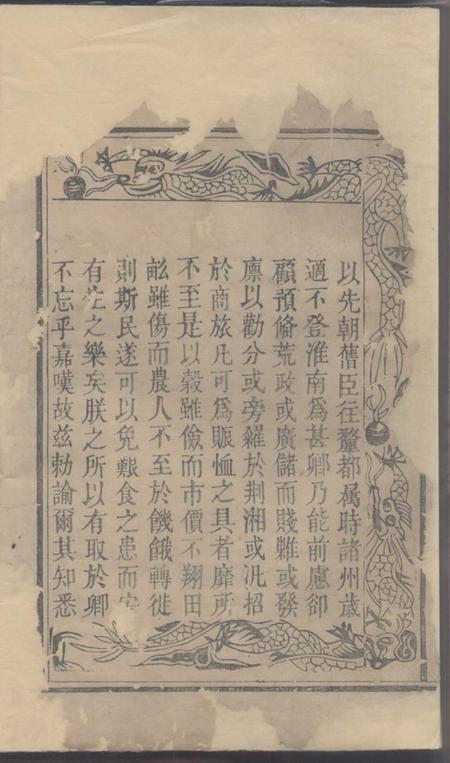 以先朝舊臣往釐都屬時諸州歲
適不登淮南爲甚卿乃能前慮卻
顧預俻荒政或廣儲而賤糶或發
廪以勸分或旁糴於荆湘或汎招
於商旅凡可爲賑恤之具者靡所
不至是以糓雖儉而市價不翔田
畝雖傷而農人不至於饑餓轉徙
則斯民遂可以免艱食之患而安
有生之樂矣朕之所以有取於卿
不忘乎嘉嘆故兹勑諭爾其知悉